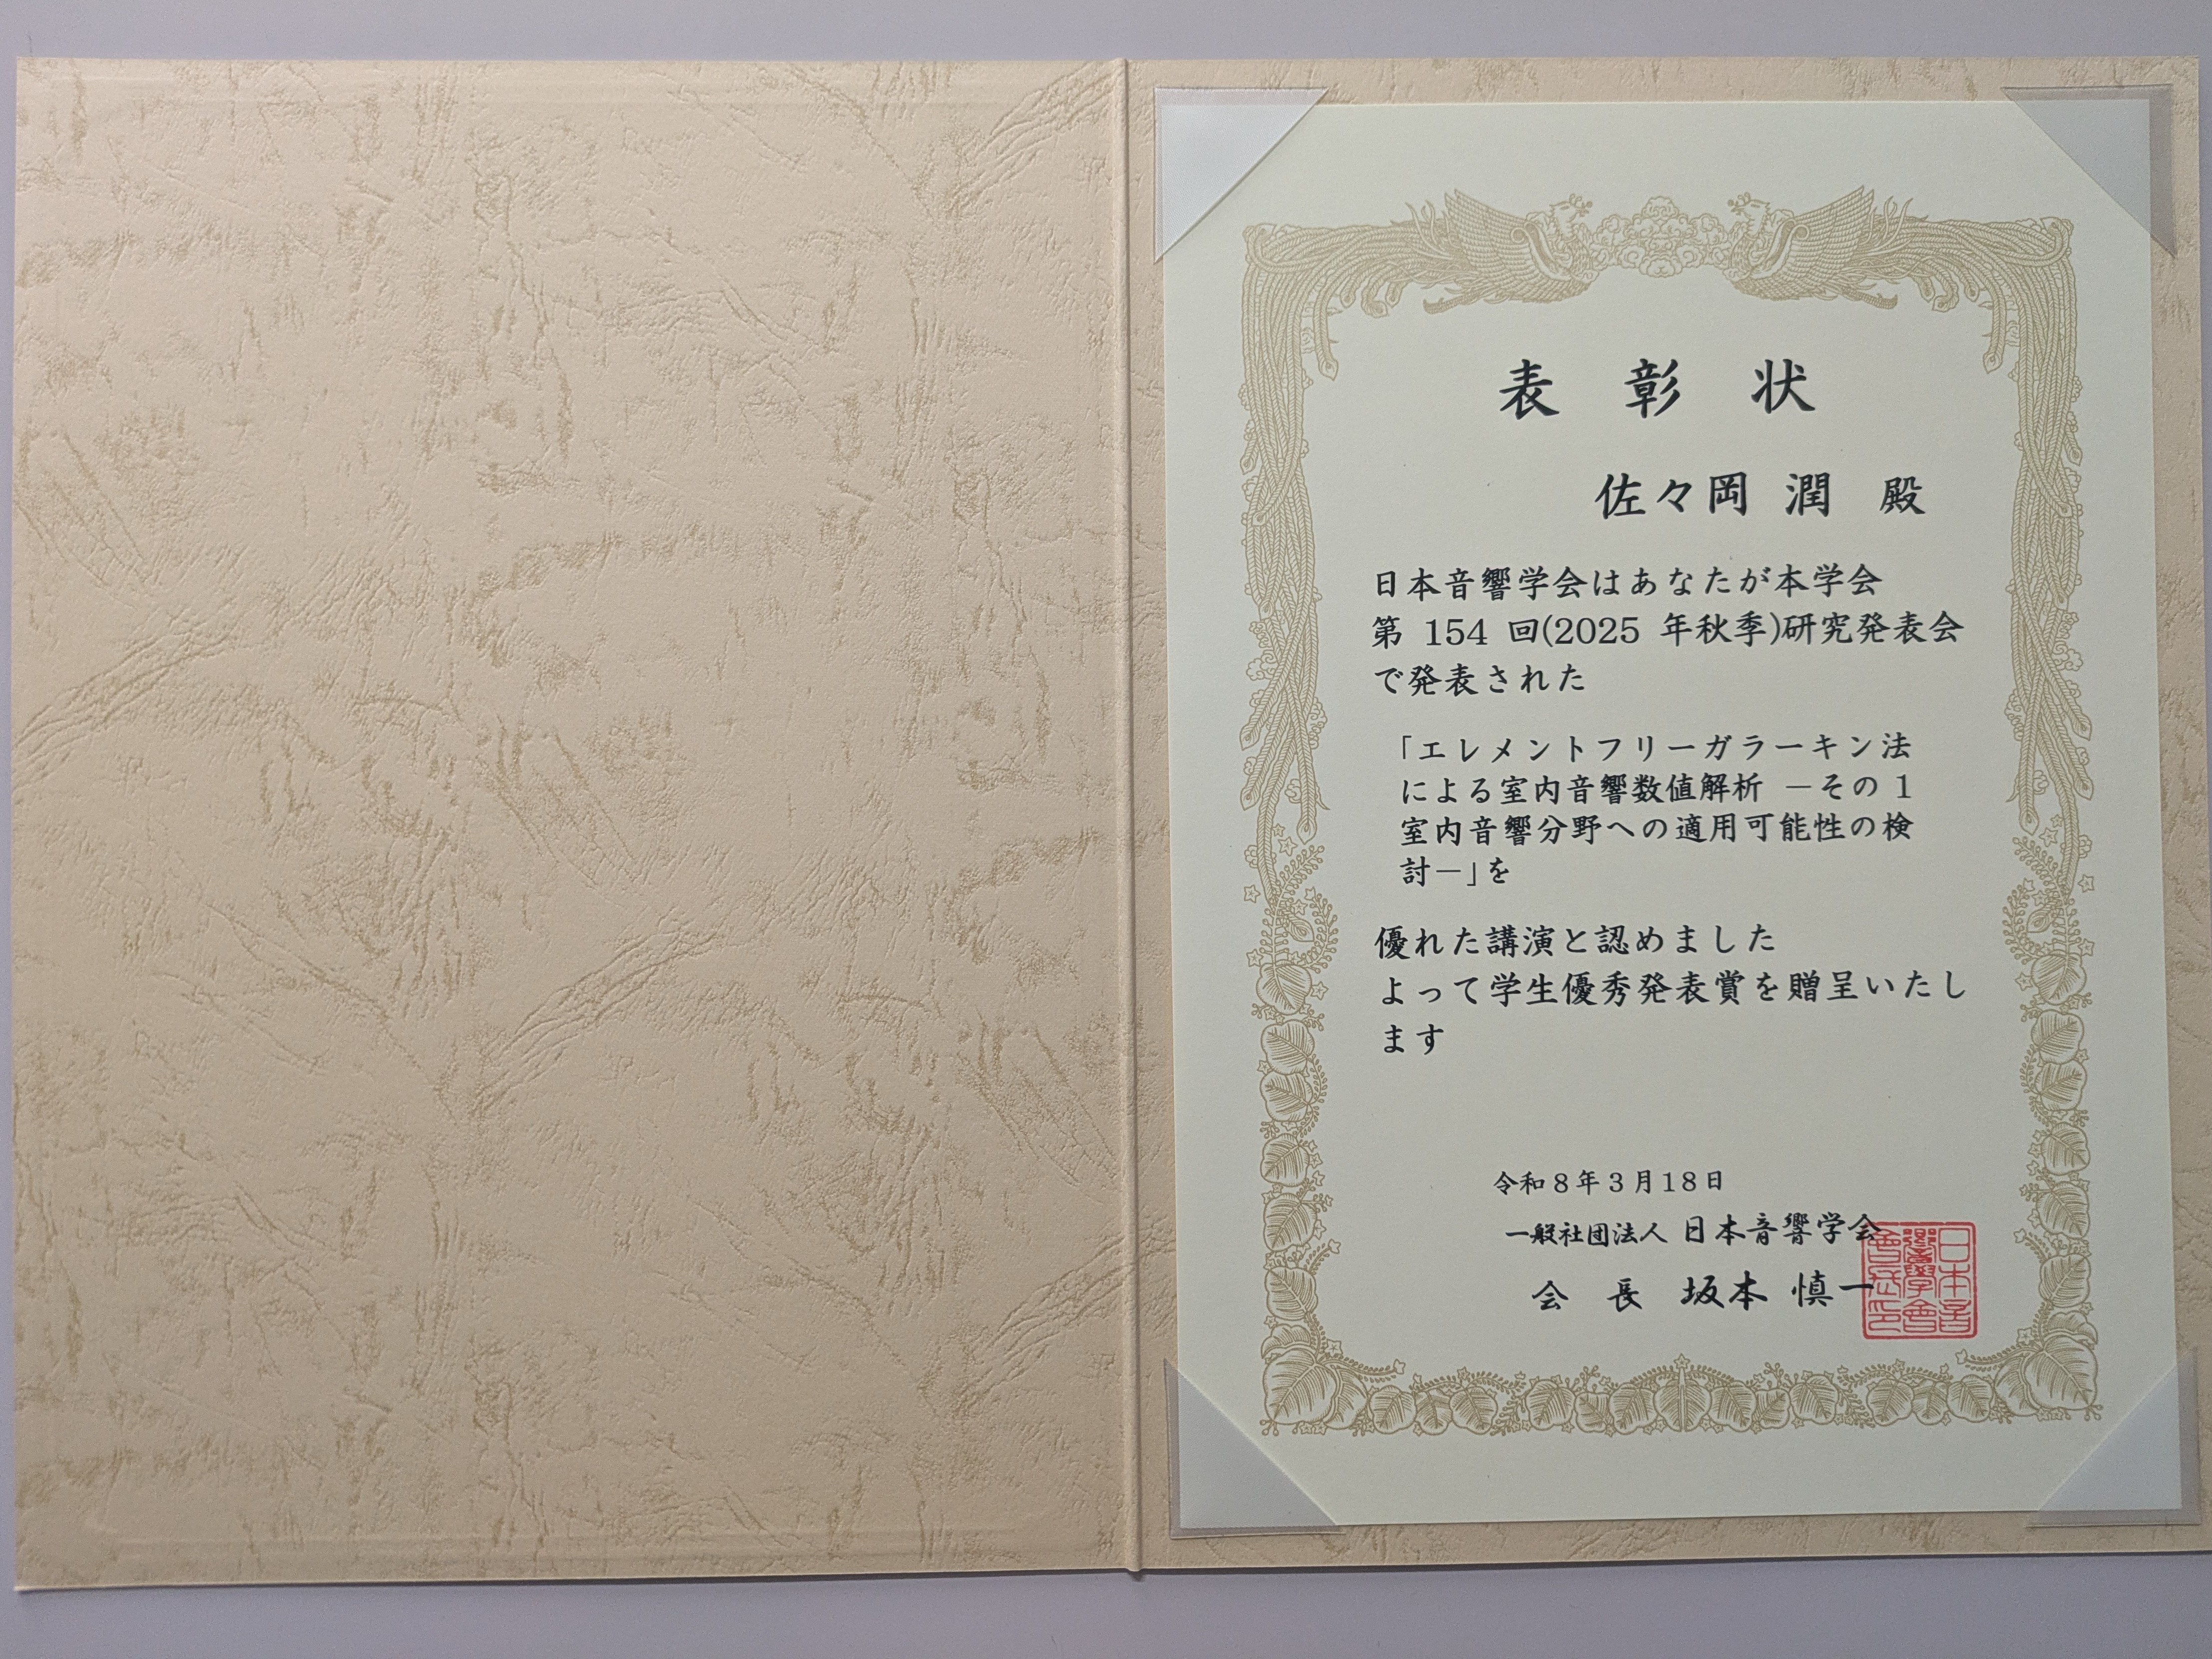 表彰状
佐々岡 潤 殿
日本音響学会はあなたが本学会
第 154 回(2025 年秋季)研究発表会
で発表された
「エレメントフリーガラーキン法
による室内音響数値解析 －その 1
室内音響分野への適用可能性の検
討－」を
優れた講演と認めました
よって学生優秀発表賞を贈呈いたし
ます
令和8年3月18日
一般社団法人 日本音響学会
会 長 坂本 慎一
日本音
響學會
會長印